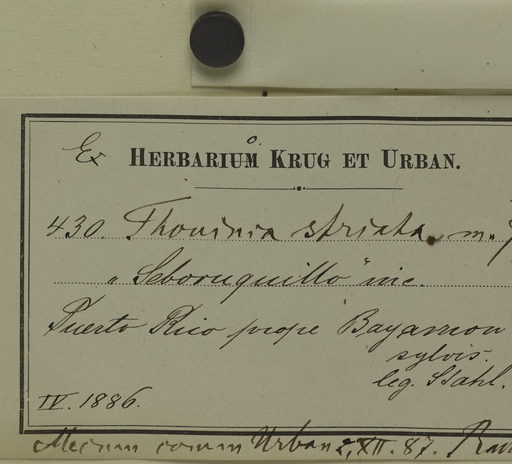 Ex HERBARIUM KRUG ET URBAN.
430. Thouinia striata m.
"Seboruquillo" inc.
Puerto Rico prope Bayamon
sylvis.
leg. Stahl.
IV. 1886.
Urban XII. 87.